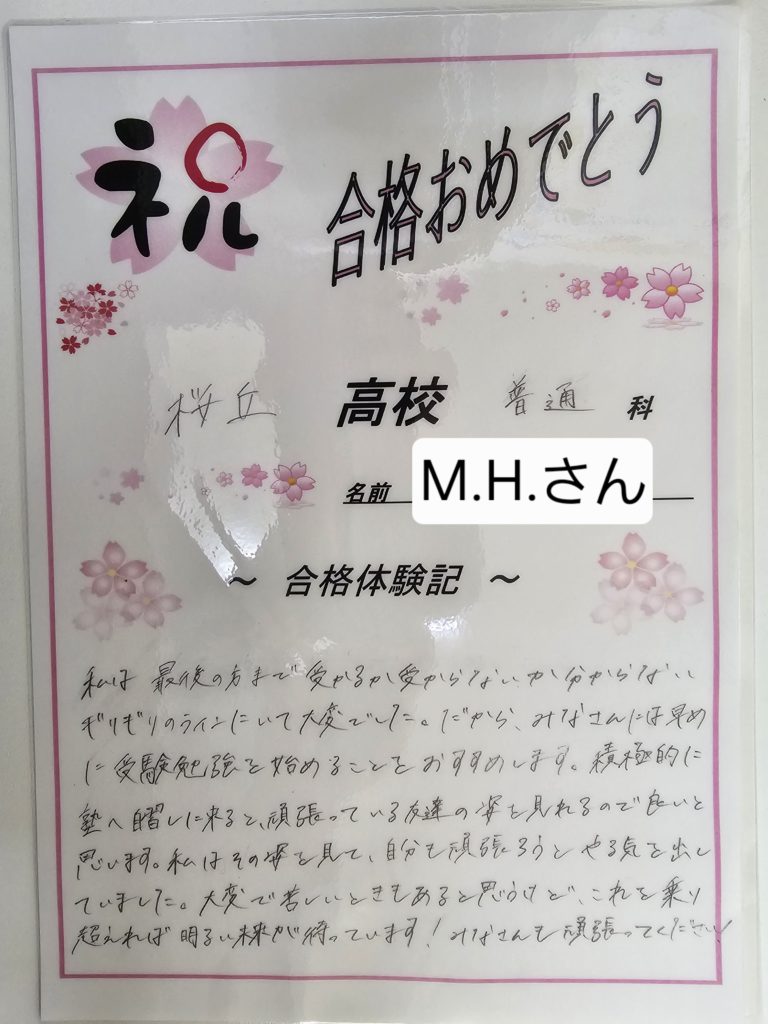 祝
合格おめでとう
桜丘 高校 普通 科
名前 M.H.さん
～ 合格体験記 ～
私は最後の方まで受かるか受からないか分からない
ギリギリのラインにいて大変でした。だから、みなさんには早め
に受験勉強を始めることをおすすめします。積極的に
塾へ自習しに来ると、頑張っている友達の姿を見れるので良いと
思います。私はその姿を見て、自分も頑張ろうとやる気を出し
ていました。大変で苦しいときもあると思うけど、これを乗り
超えれば明るい未来が待っています!みなさんも頑張ってください!